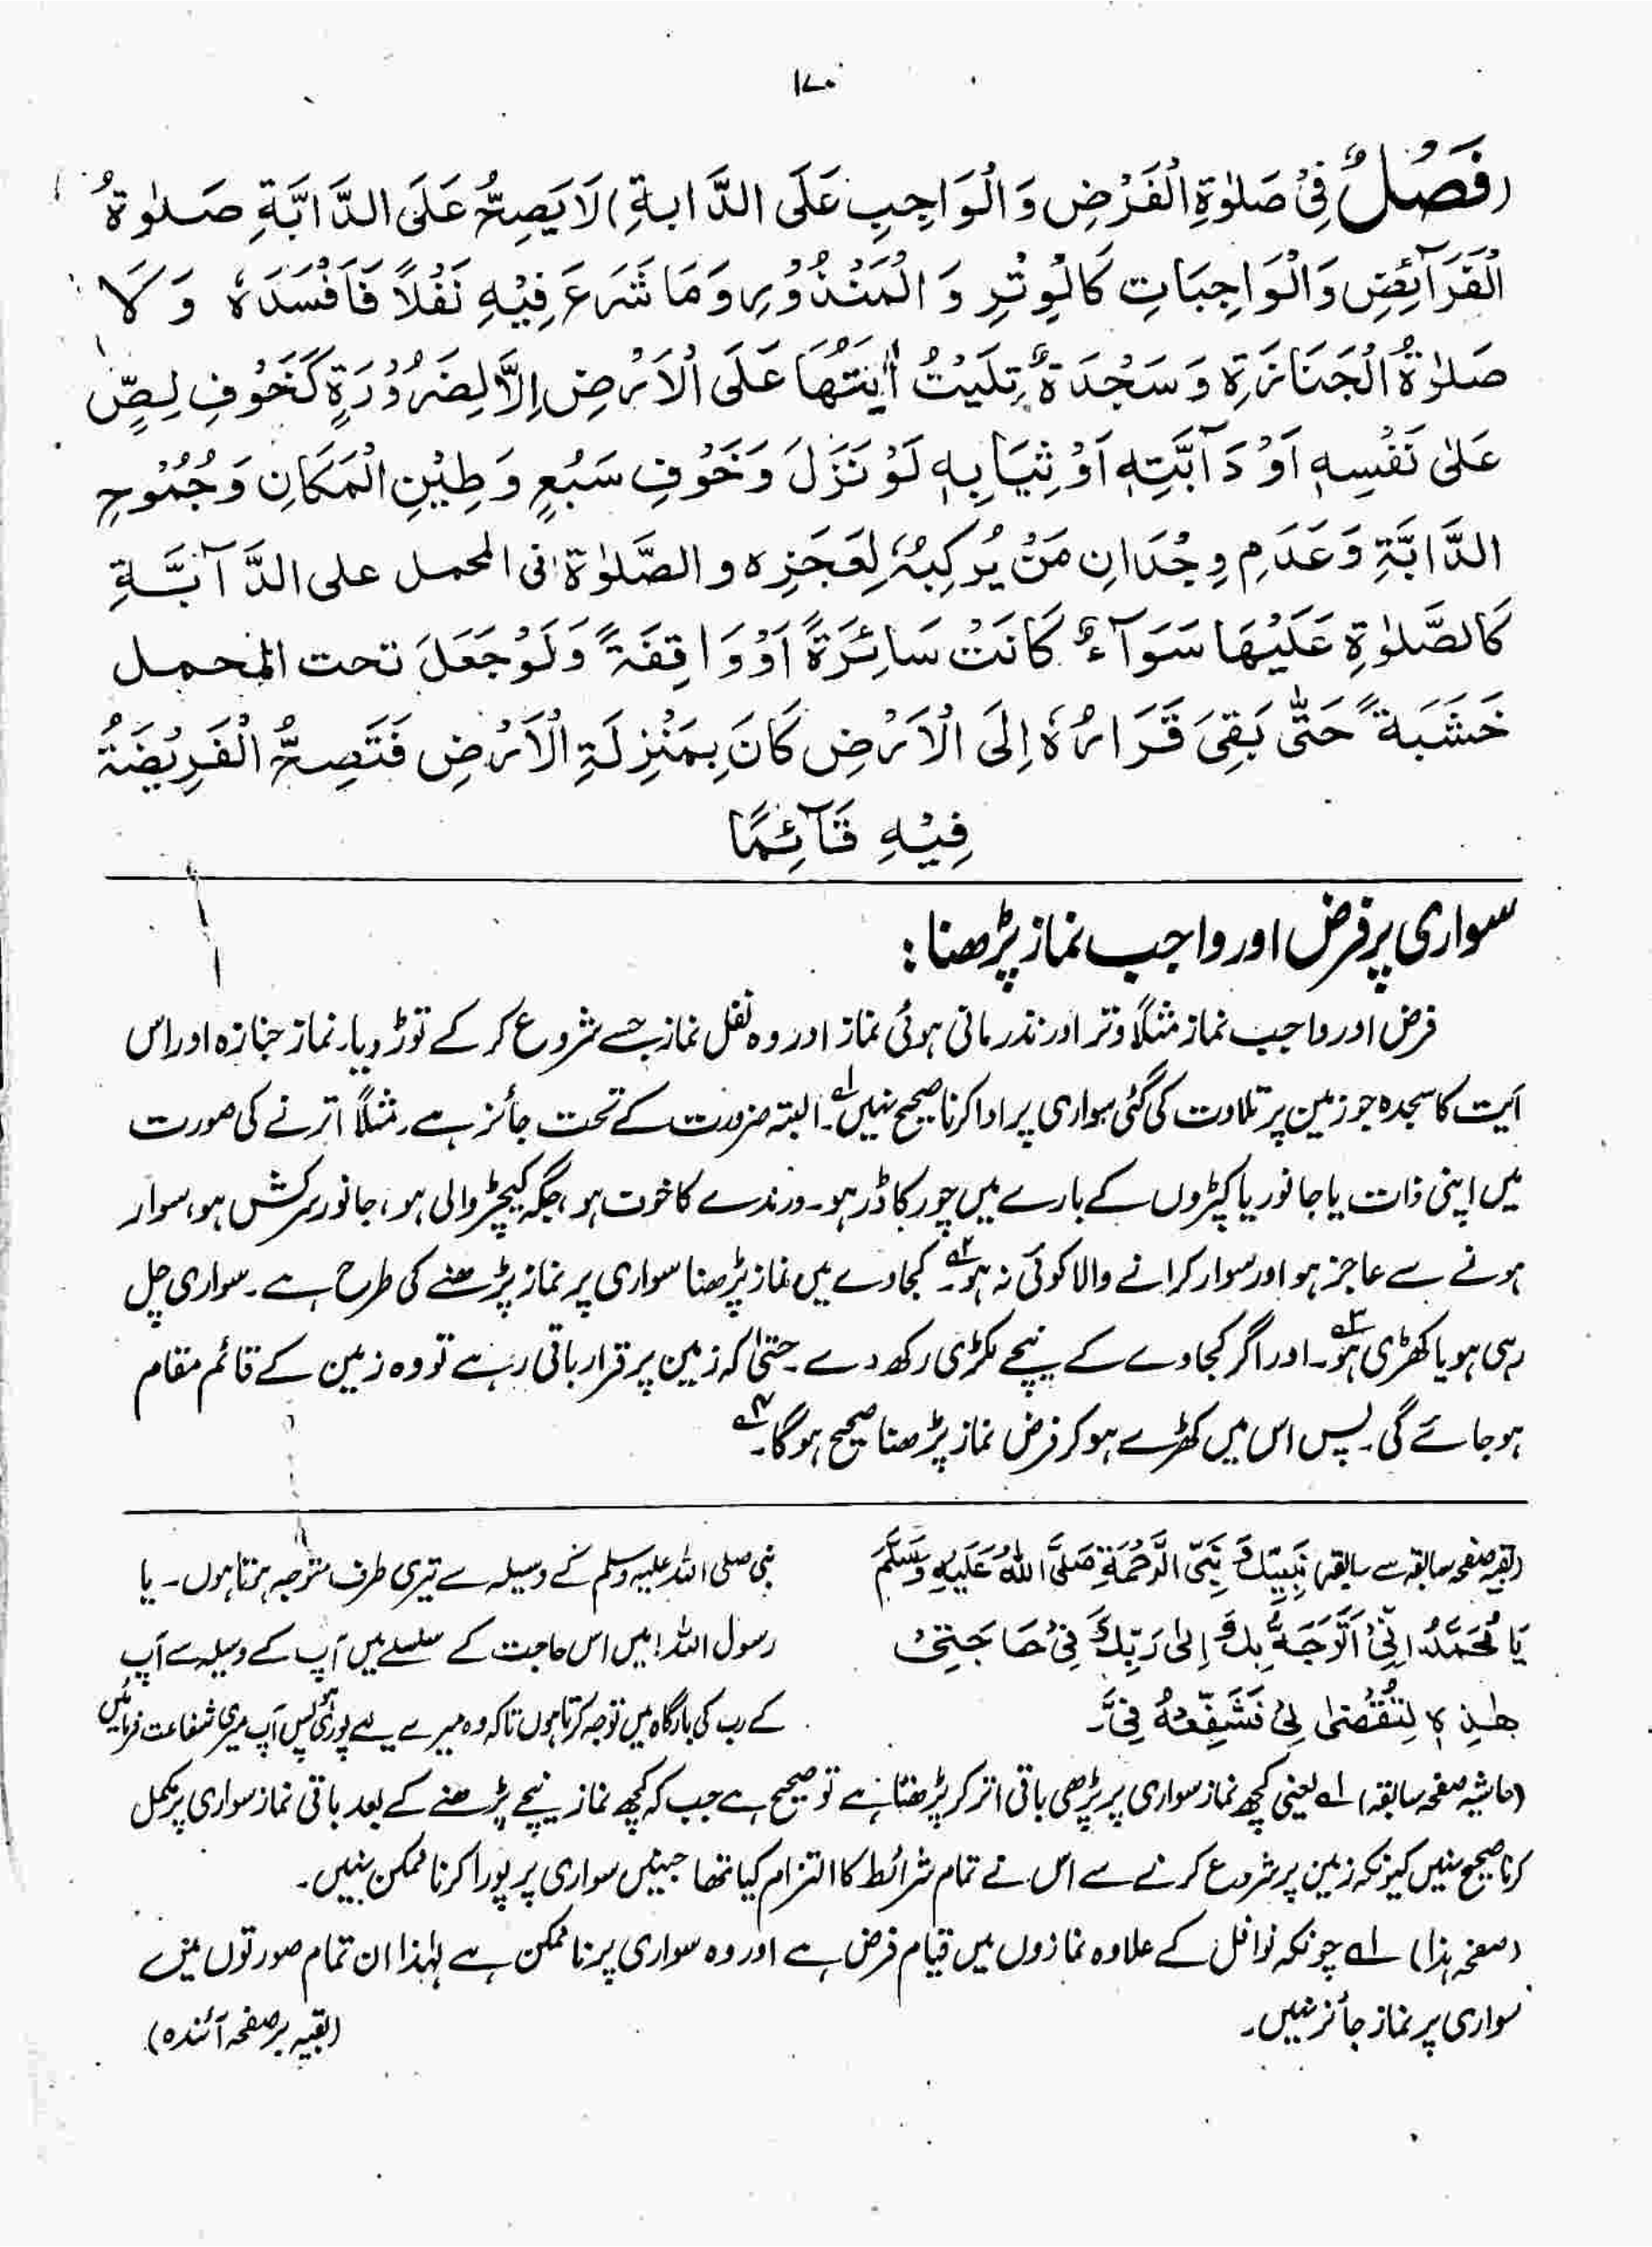 ۱۷۰
(فَصْلٌ فِیْ صَلٰوۃِ الْفَرْضِ وَ الْوَاجِبِ عَلَی الدَّابۃِ) لَا یَصِحُّ عَلَی الدَّابَّۃِ صَلٰوۃُ
الْفَرَآئِضِ وَالْوَاجِبَاتِ کَالْوِتْرِ وَ الْمَنْذُوْرِ وَمَا شَرَعَ فِیْہِ نَفْلًا فَاَفْسَدَہٗ وَلَا
صَلٰوۃُ الْجَنَازَۃِ وَ سَجْدَۃٌ تُلِیَتْ اٰیَتُھَا عَلَی الْاَرْضِ اِلَّا لِضَرُوْرَۃٍ کَخَوْفِ لِصٍّ
عَلٰی نَفْسِہٖ اَوْ دَآبَّتِہٖ اَوْ ثِیَابِہٖ لَوْ نَزَلَ وَخَوْفِ سَبُعٍ وَ طِیْنِ الْمَکَانِ وَجُمُوْحِ
الدَّابَّۃِ وَعَدَمِ وِجْدَانِ مَنْ یُرْکِبُہٗ لِعَجَزِہ و الصَّلٰوۃ فی المحمل علی الدَّآبَّۃِ
کَالصَّلٰوۃِ عَلَیْھَا سَوَآءٌ کَانَتْ سَائِرَۃً اَوْ وَاقِفَۃً وَلَوْ جَعَلَ تحت المحمل
خَشَبَۃً حَتّٰی بَقِیَ قَرَارُہٗ اِلَی الْاَرْضِ کَانَ بِمَنْزِلَۃِ الْاَرْضِ فَتَصِحُّ الْفَرِیْضَۃُ
فِیْہِ قَآئِمًا
سواری پر فرض اور واجب نماز پڑھنا:
فرض اور واجب نماز مثلاً وتر اور نذر مانی ہوئی نماز اور وہ نفل نماز جسے شروع کر کے توڑ دیا۔ نماز جنازہ اور اس
آیت کا سجدہ جو زمین پر تلاوت کی گئی سواری پر ادا کرنا صحیح نہیں۱ے۔ البتہ ضرورت کے تحت جائز ہے۔ مثلاً اترنے کی صورت
میں اپنی ذات یا جانور یا کپڑوں کے بارے میں چور کا ڈر ہو۔ درندے کا خوف ہو، جگہ کیچڑ والی ہو، جانور سرکش ہو، سوار
ہونے سے عاجز ہو اور سوار کرانے والا کوئی نہ ہو۲ے۔ کجاوے میں نماز پڑھنا سواری پر نماز پڑھنے کی طرح ہے۔ سواری چل
رہی ہو یا کھڑی ہو۳ے۔ اور اگر کجاوے کے نیچے لکڑی رکھ دے۔ حتیٰ کہ زمین پر قرار باقی رہے تو وہ زمین کے قائم مقام
ہو جائے گی۔ پس اس میں کھڑے ہو کر فرض نماز پڑھنا صحیح ہوگا۴ے۔
(بقیہ صفحہ سابقہ سے سابقہ) بِنَبِیِّکَ نَبِیِّ الرَّحْمَۃِ صَلَّی اللّٰہُ عَلَیْہِ وَسَلَّمَ نبی صلی اللہ علیہ وسلم کے وسیلہ سے تیری طرف متوجہ ہوتا ہوں۔ یا
یَا مُحَمَّدُ اِنِّیْ اَتَوَجَّہُ بِکَ اِلٰی رَبِّکَ فِیْ حَاجَتِیْ رسول اللہ! میں اس حاجت کے سلسلے میں آپ کے وسیلہ سے آپ
ھٰذِہٖ لِتُقْضٰی لِیْ فَشَفِّعْہُ فِیَّ۔ کے رب کی بارگاہ میں توجہ کرتا ہوں تاکہ وہ میرے لیے پوری ہو پس آپ میری شفاعت فرمائیں
(حاشیہ صفحہ سابقہ) ۱ے یعنی کچھ نماز سواری پر پڑھی باقی اتر کر پڑھتا ہے تو صحیح ہے جب کہ کچھ نماز نیچے پڑھنے کے بعد باقی نماز سواری پر مکمل
کرنا صحیح نہیں کیونکہ زمین پر شروع کرنے سے اس نے تمام شرائط کا التزام کیا تھا جنہیں سواری پر پورا کرنا ممکن نہیں۔
(صفحہ ہذا) ۱ے چونکہ نوافل کے علاوہ نمازوں میں قیام فرض ہے اور وہ سواری پر ناممکن ہے لہٰذا ان تمام صورتوں میں
سواری پر نماز جائز نہیں۔ (بقیہ بر صفحہ آئندہ)